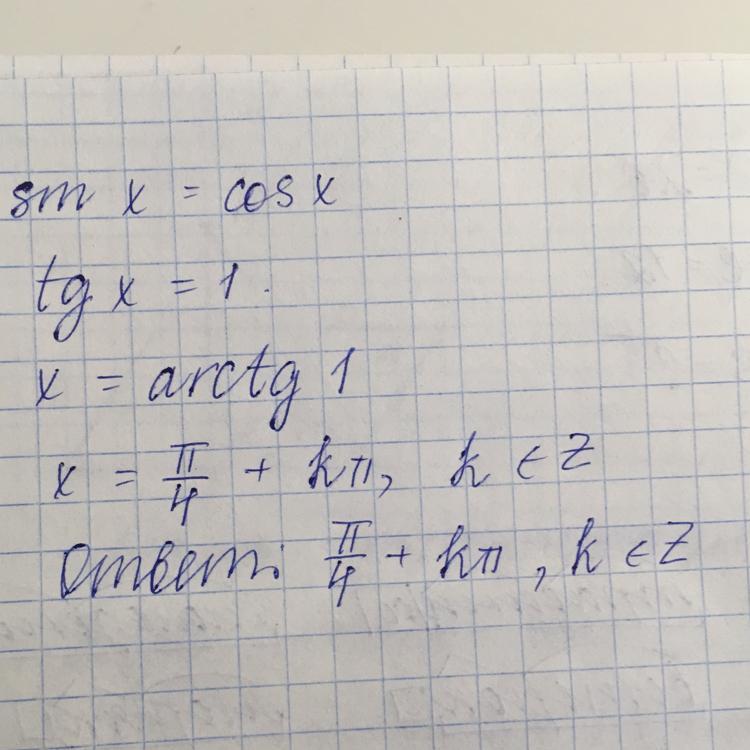 sin x = cos x
tg x = 1.
x = arctg 1
x = π/4 + kπ, k ∈ Z
Ответ: π/4 + kπ, k ∈ Z